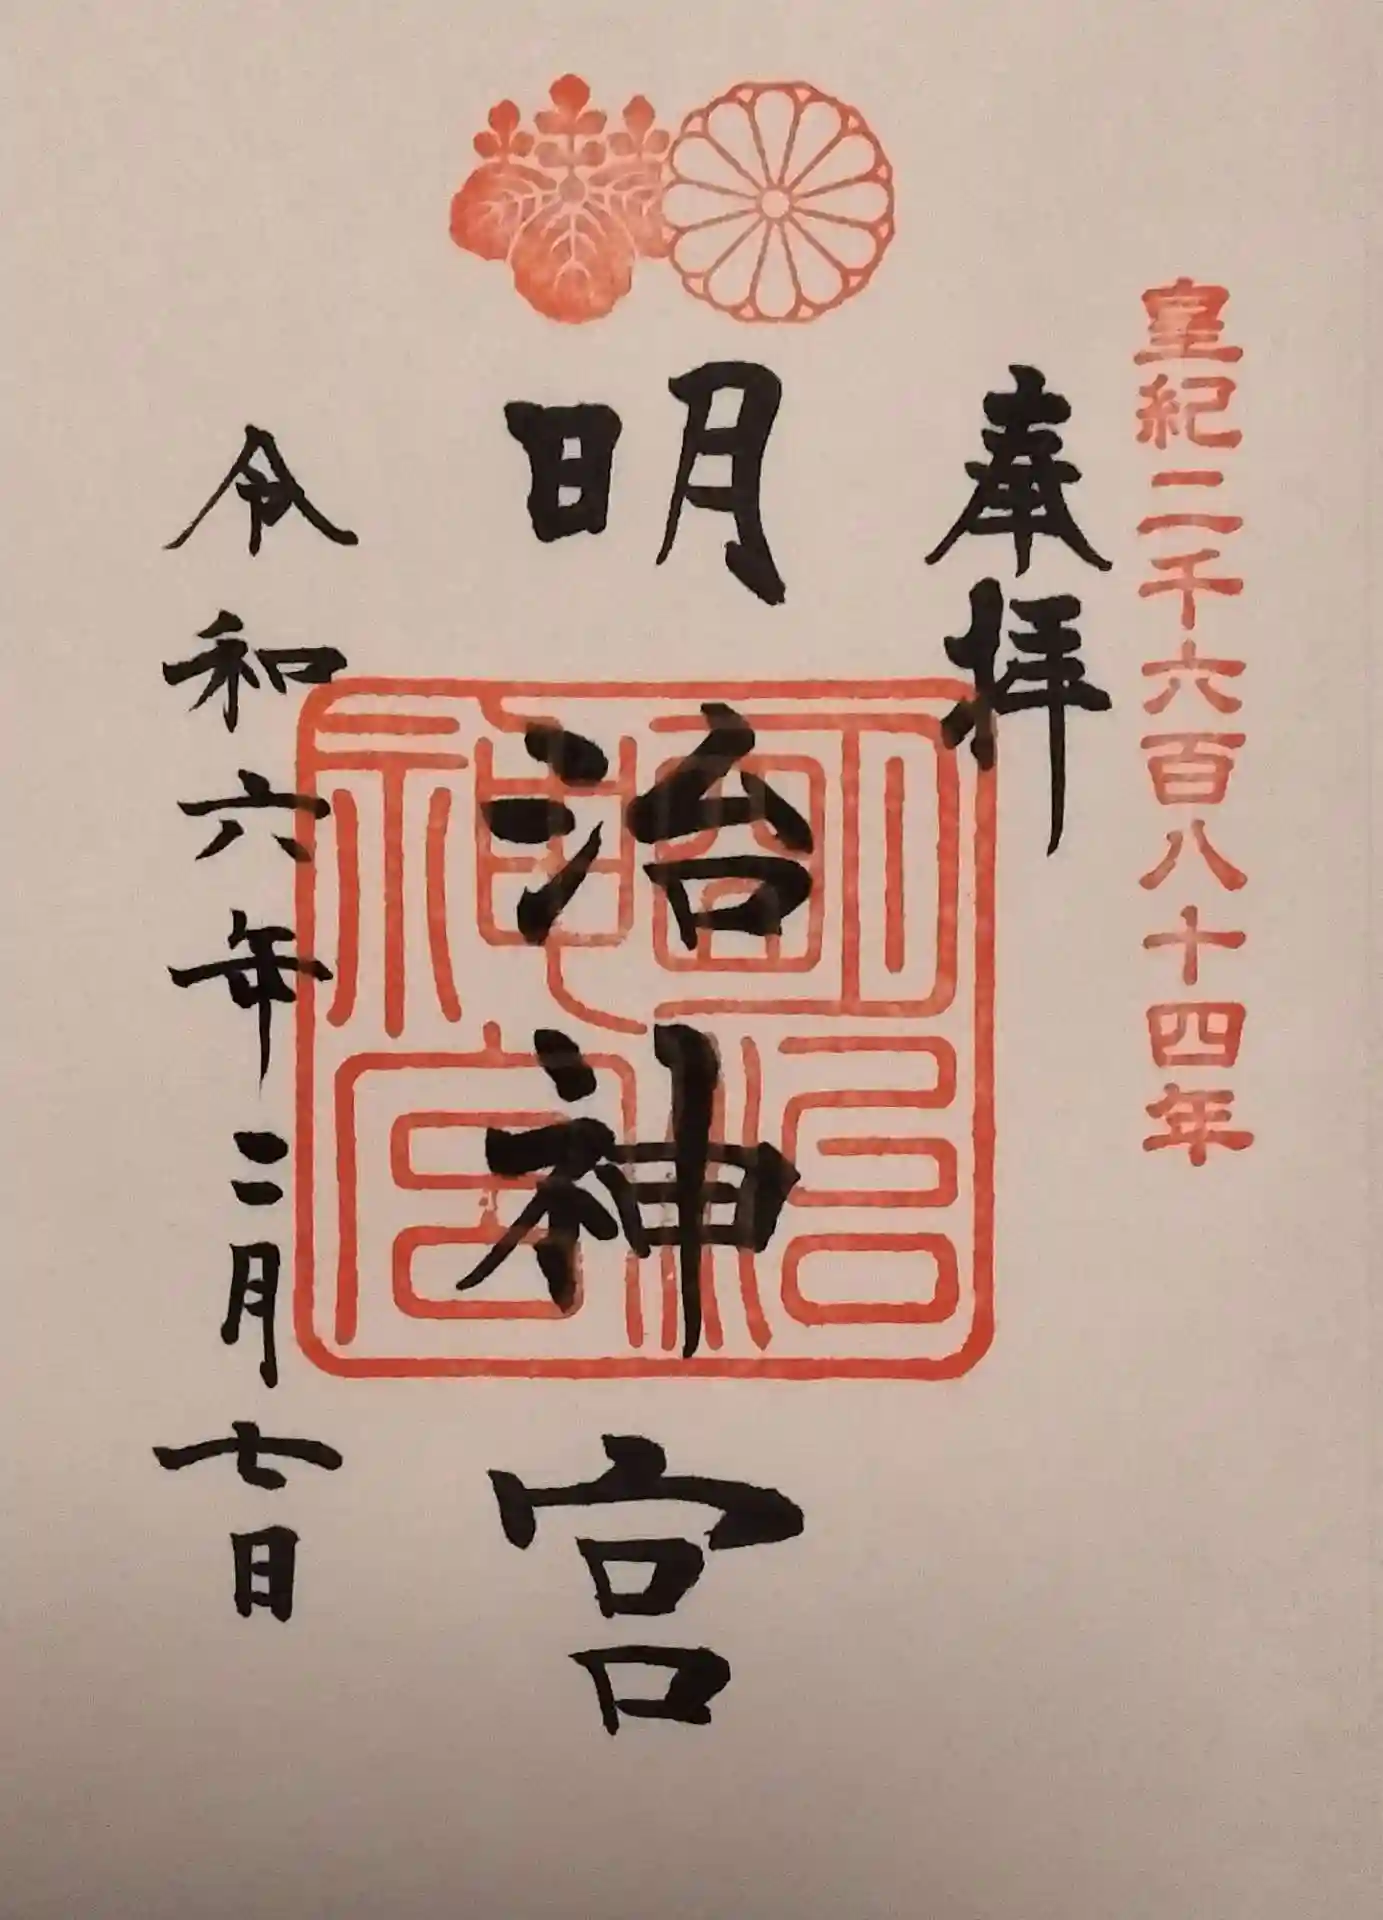 皇紀二千六百八十四年
奉拝
明治神宮
明治
神宮
令和六年二月七日